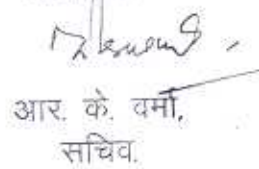 आर. के. वर्मा,
सचिव.